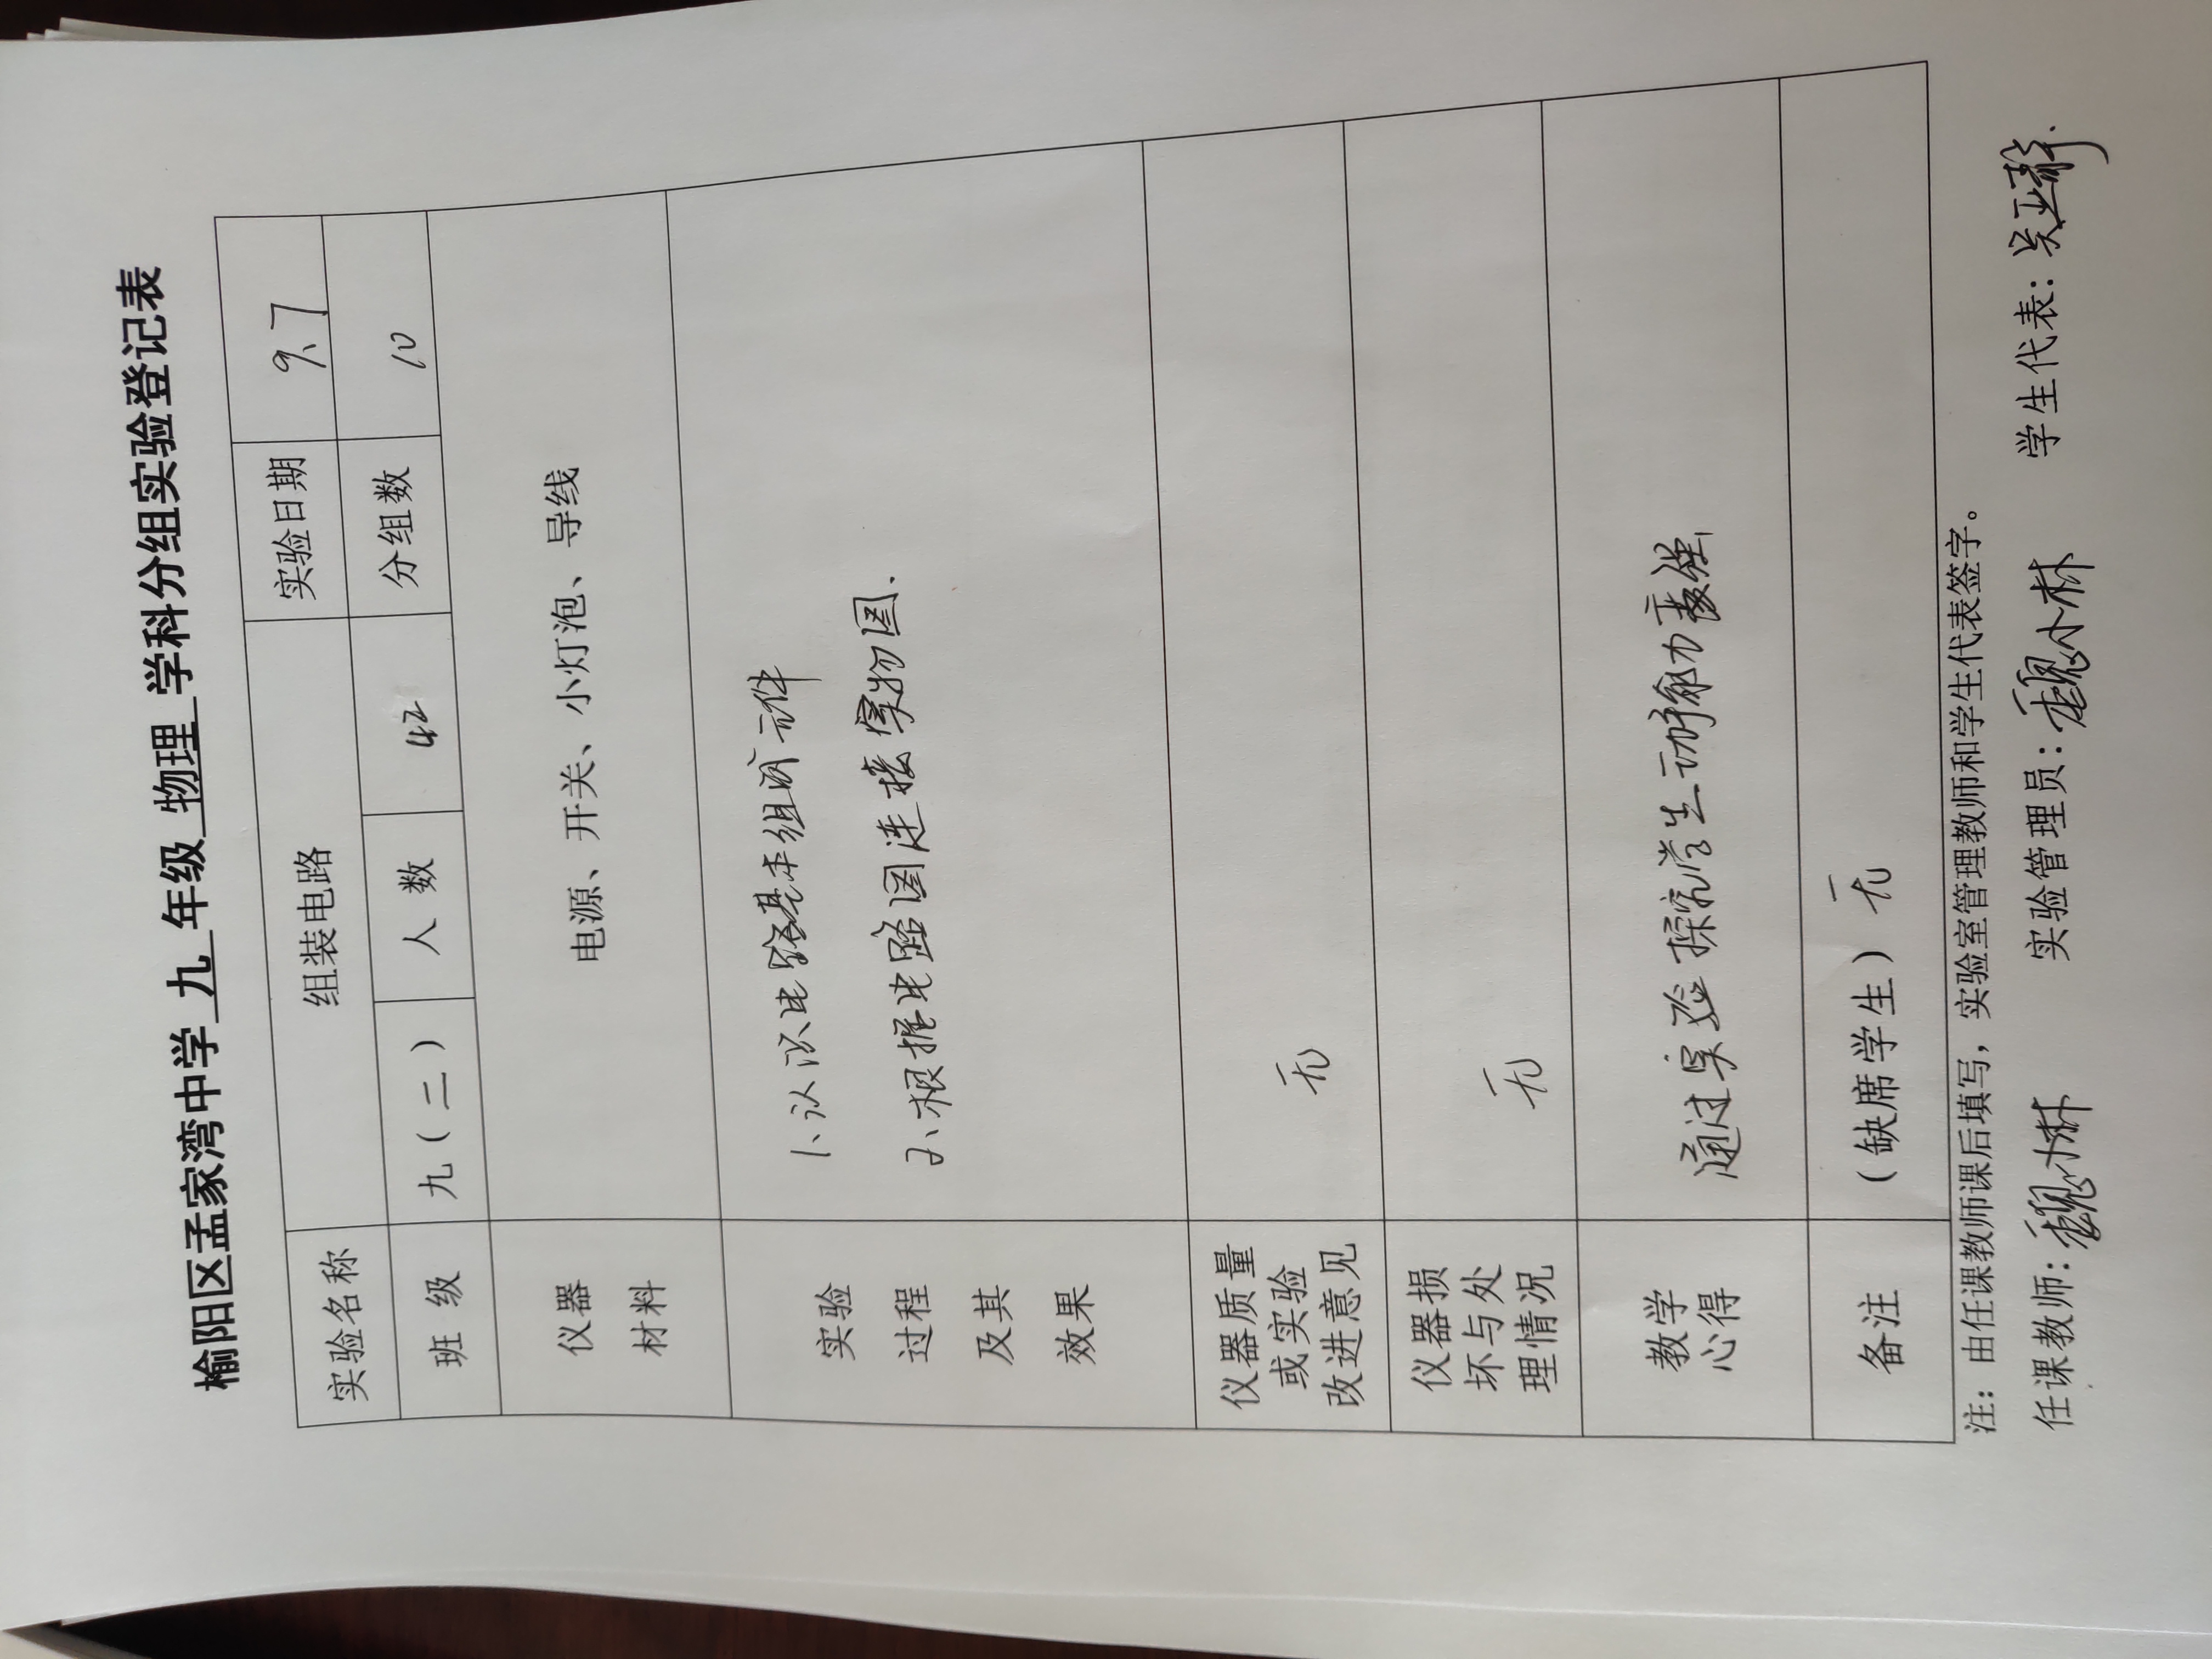 榆阳区孟家湾中学 九 年级 物理 学科分组实验登记表
实验名称 组装电路 实验日期 9.7
班 级 九（二） 人 数 42 分组数 10
仪器
材料
电源、开关、小灯泡、导线
实验
过程
及其
效果
1、认识电路基本组成元件
2、根据电路图连接实物图.
仪器质量
或实验
改进意见
无
仪器损
坏与处
理情况
无
教学
心得
通过实验探究学生动手能力变强
备注
（缺席学生）无
注：由任课教师课后填写，实验室管理教师和学生代表签字。
任课教师：魏小林 实验管理员：魏小林 学生代表：吴